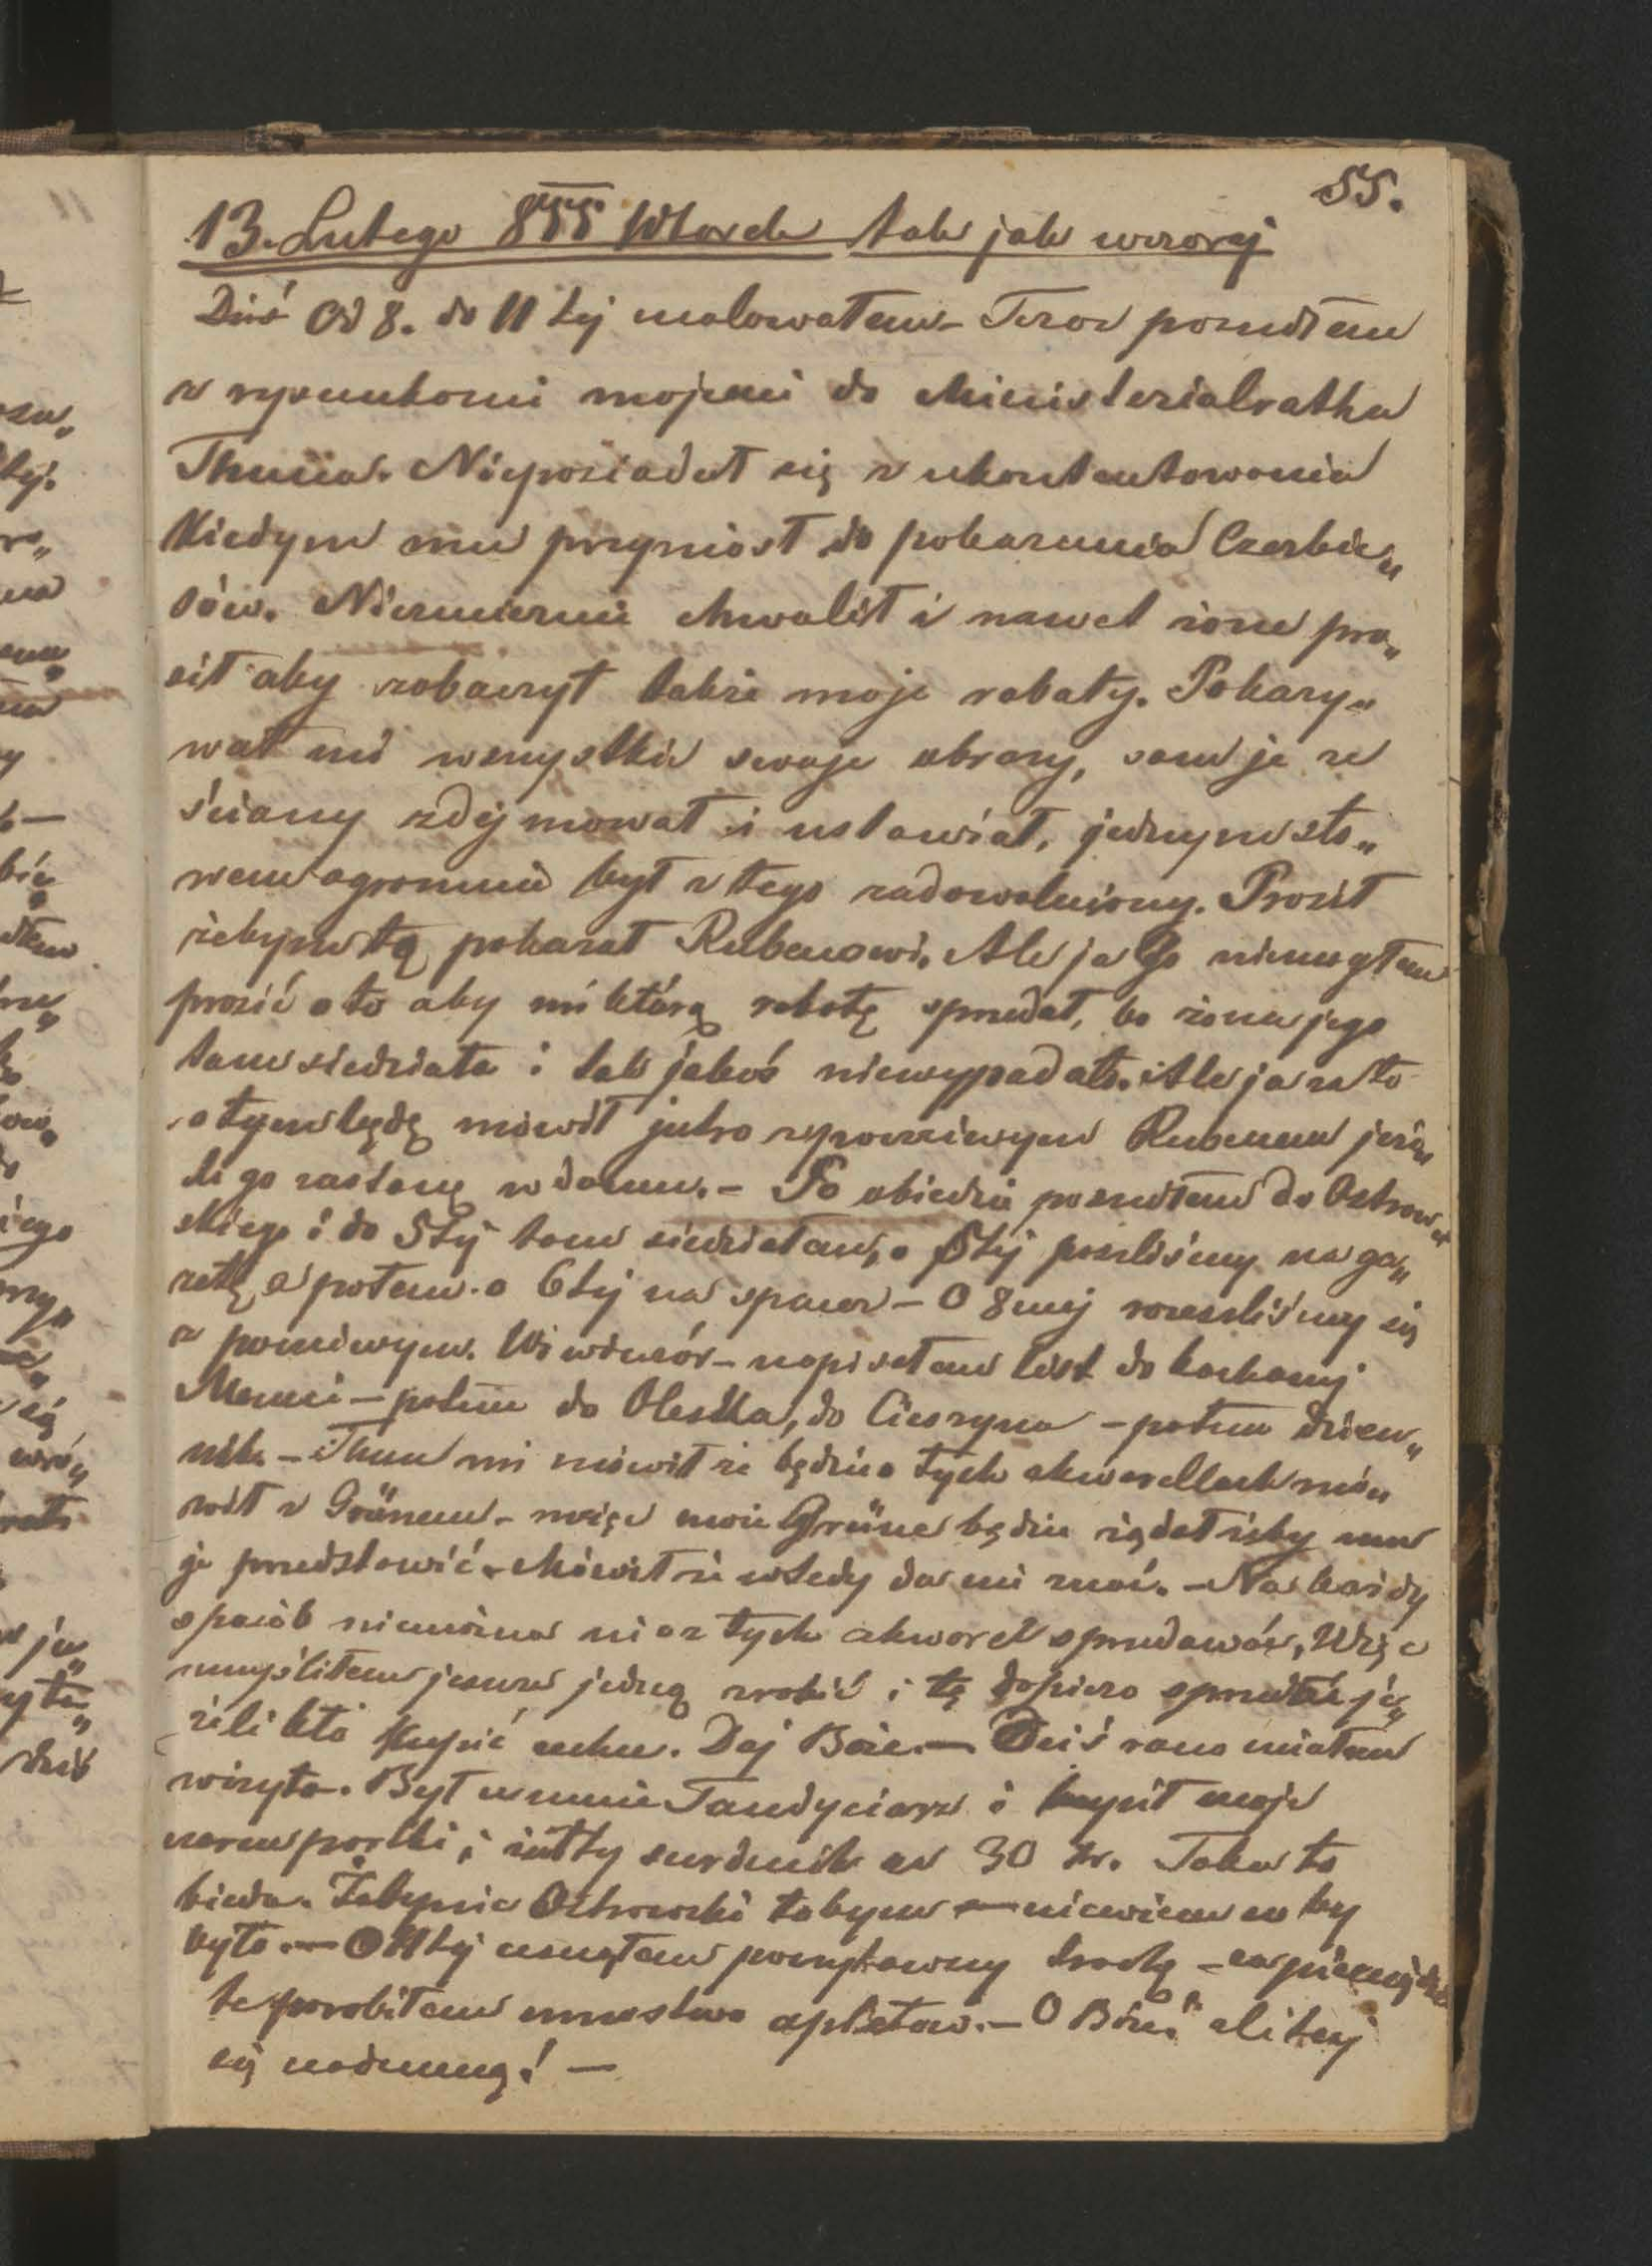 55.
13. Lutego 855 Wtorek tak jak wczoraj
Dziś Od 8. do 11tej malowałem - Teraz poszedłem
z rysunkami mojemi do Ministerialratha
Thuna. Nieposiadał się z ukontentowania
Kiedym mu przyniósł do pokazania Czerkie„
sów. Niezmiernie chwalił i nawet żone pro„
sił aby zobaczył także moje roboty. Pokazy„
wał mi wszystkie swoje obrazy, sam je ze
ściany zdejmował i ustawiał, jednym sło„
wem ogromnie był z tego zadowolniony. Prosił
żebym tą pokazał Rubenowi. Ale ja Go niemogłem
prosić o to aby mi którą robotę sprzedał, bo żona jego
tam siedziała i tak jakoś niewypadało. Ale ja za to
o tym będę mówił jutro z poczciwym Rubenem jeże„
li go zastanę w domu. - Po obiedzie poszedłem do Ostrow„
skiego i do 5tej tam siedziałem, o 5tej poszliśmy na ga„
zetę, a potem o 6tej na spacer - O 8mej rozeszliśmy się
z poczciwym. Wiwieczór - napisałem list do kochanej
Mamci - potem do Oleśka, do Cieszyna - potem dzien„
nik - Thun mi mówił że będzie o tych akwarellach mó„
wił z Grünem - więc może Grüne będzie żądał żeby mu
je przedstawić. Mówił że wtedy da mi znać. - Na każdy
sposób niemożna mi ztych akwarel sprzedawać, Więc
umyśliłem jeszcze jedną zrobić i tę dopiero sprzedać je„
żeli kto kupić zechce. Daj Boże. - Dziś rano miałem
wizytę. Był u mnie Tandyciarz i kupił moje
czarne portki i żółty surducik za 30 kr. Taka to
bieda. Żeby nie Ostrowski tobym - niewiem co by
było. - O 11tej usnąłem 
te porobiłem - O Boże! zlituj
się nademną! -